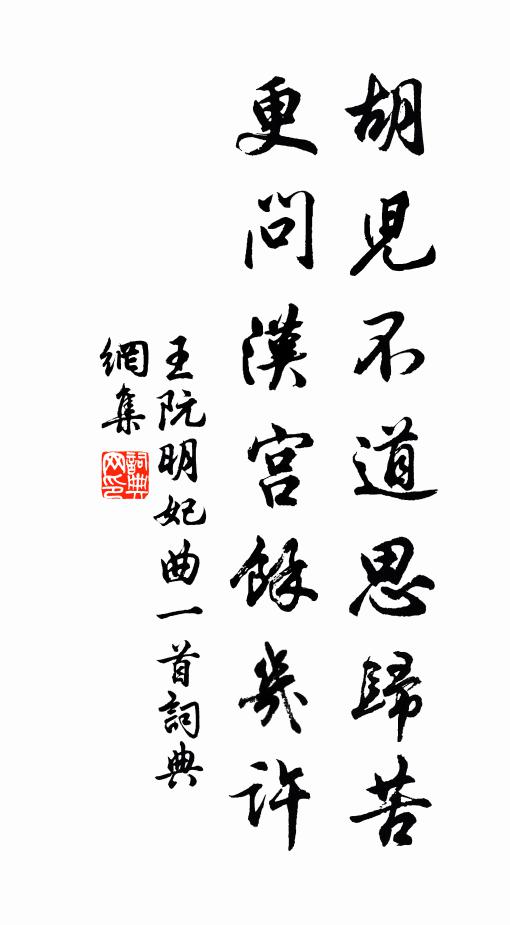 胡兒不道思歸苦
更問漢宮餘幾許
王阮明妃曲一首詞典
網集
詞典網印